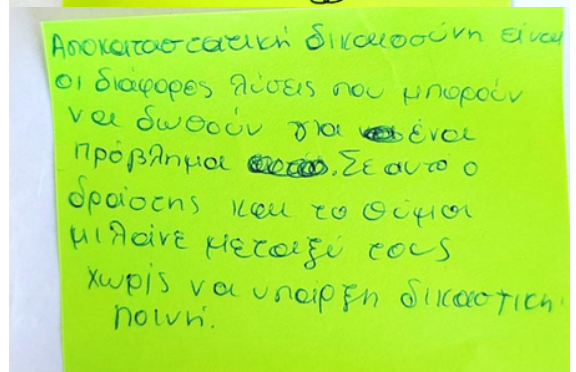 Αποκαταστατική δικαιοσύνη είναι
οι διάφορες λύσεις που μπορούν
να δωθούν για ένα
πρόβλημα . Σε αυτό ο
δράστης και το θύμα
μιλάνε μεταξύ τους
χωρίς να υπάρξη δικαστική
ποινή.